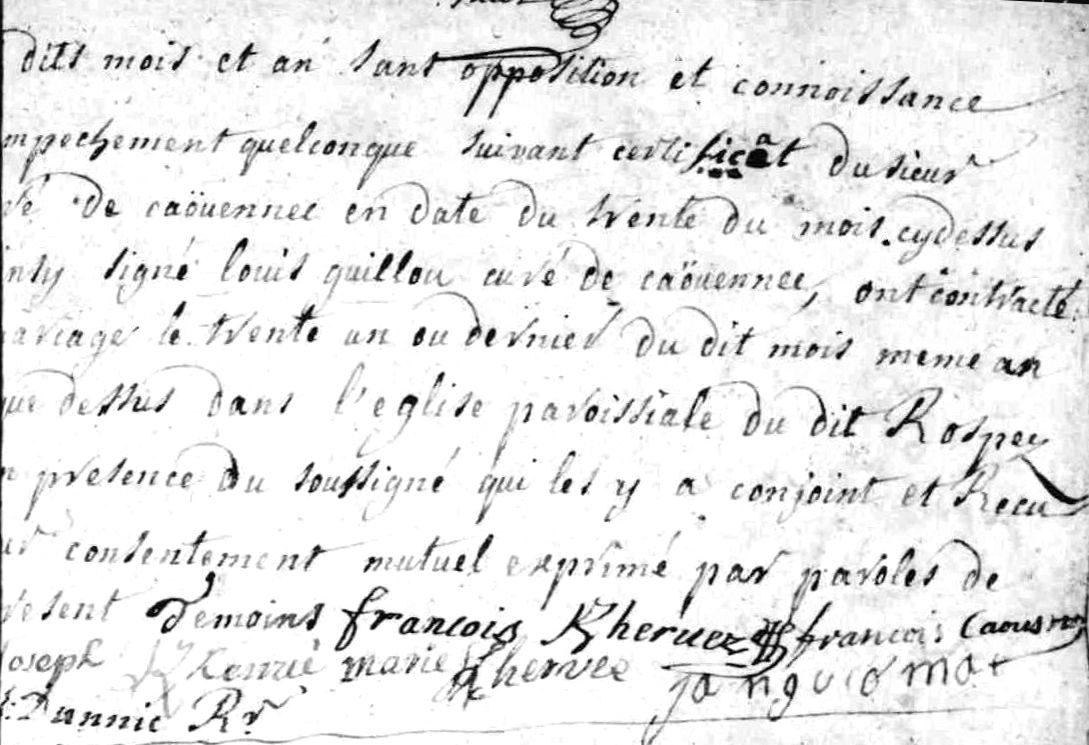 dits mois et an sans opposition et connoissance
mpechement quelconque suivant certificat du sieur
ré de caöuennec en date du trente du mois cydessus
insy signé louis guillou curé de caöuennec, ont contracté
ariage le trente un ou dernier du dit mois meme an
que dessus dans l'eglise paroissiale du dit Rospez
n presence du soussigné qui les y a conjoint et Recu
ur consentement mutuel exprimé par paroles de
resent Temoins francois Khervez francois Caous
Joseph marie yan guid mat
Dannic Rr